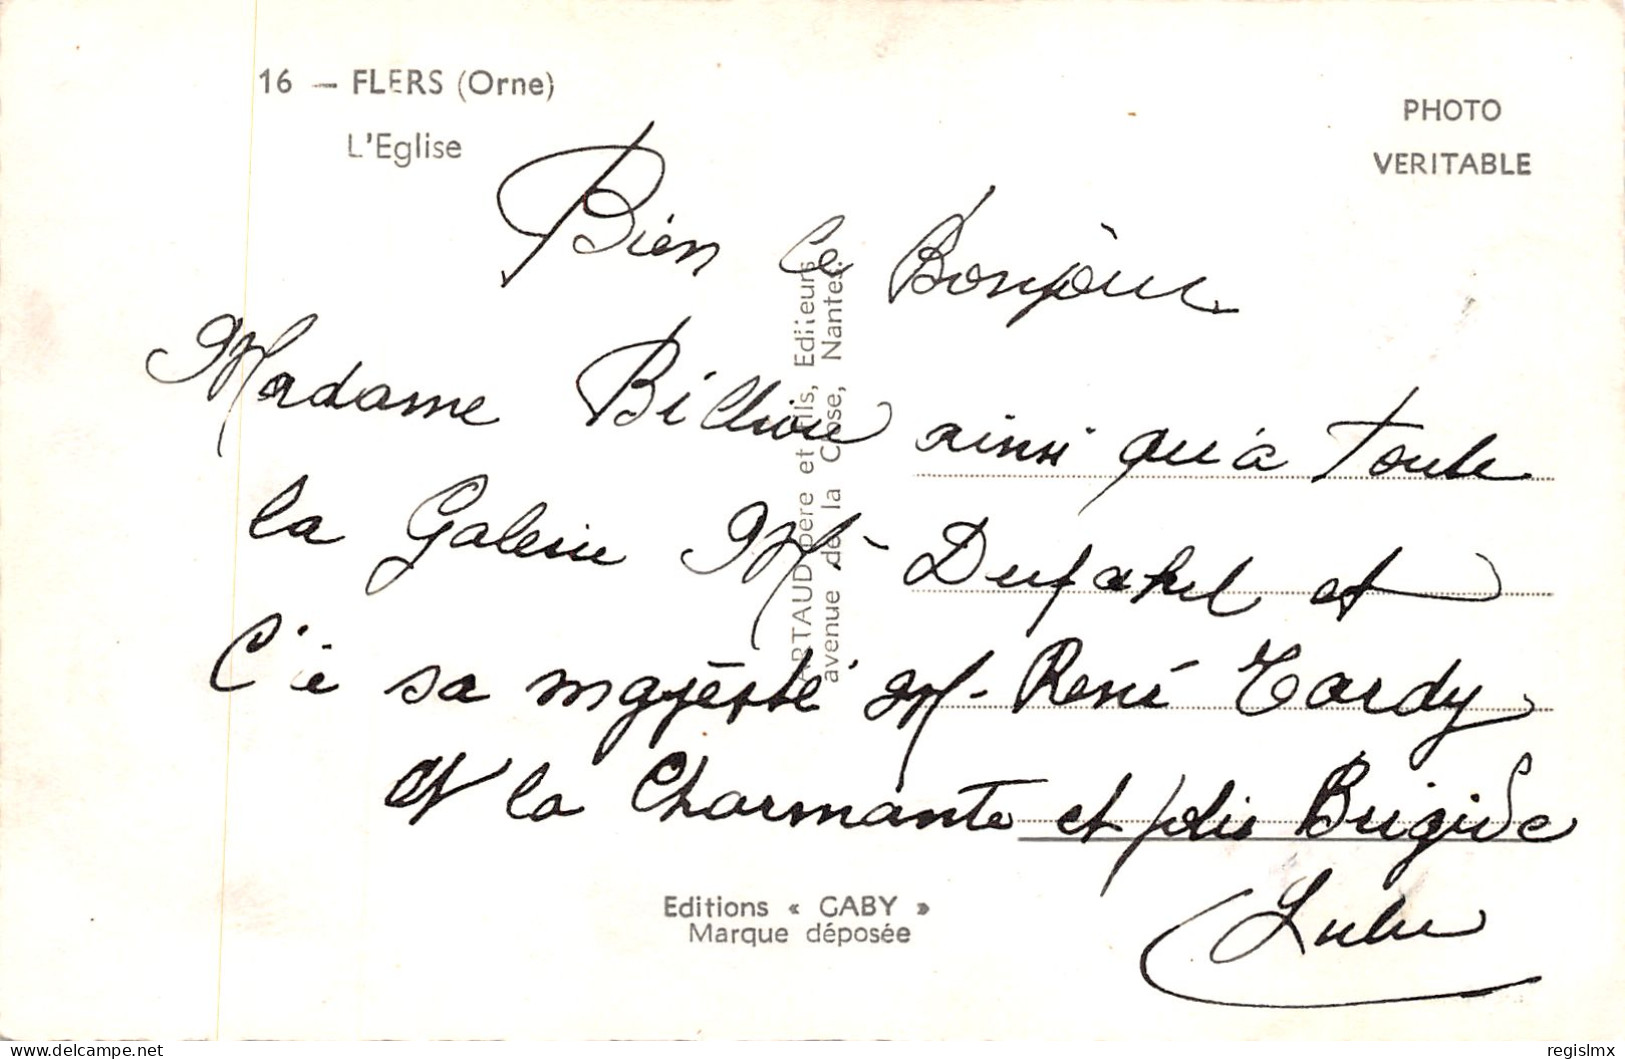 16 — FLERS (Orne)
L'Eglise
PHOTO
VERITABLE
Bien le Bonjour
Madame Billiou ainsi qu'à toute
la Galerie Mr Dufahel et
C'è sa magèsté M. René Tardy
et la Charmante et jolie Brigide
Lulu
ARTAUD père et Fils, Editeurs
avenue de la Close, Nantes.
Editions « GABY »
Marque déposée
delcampe.net
regislmx